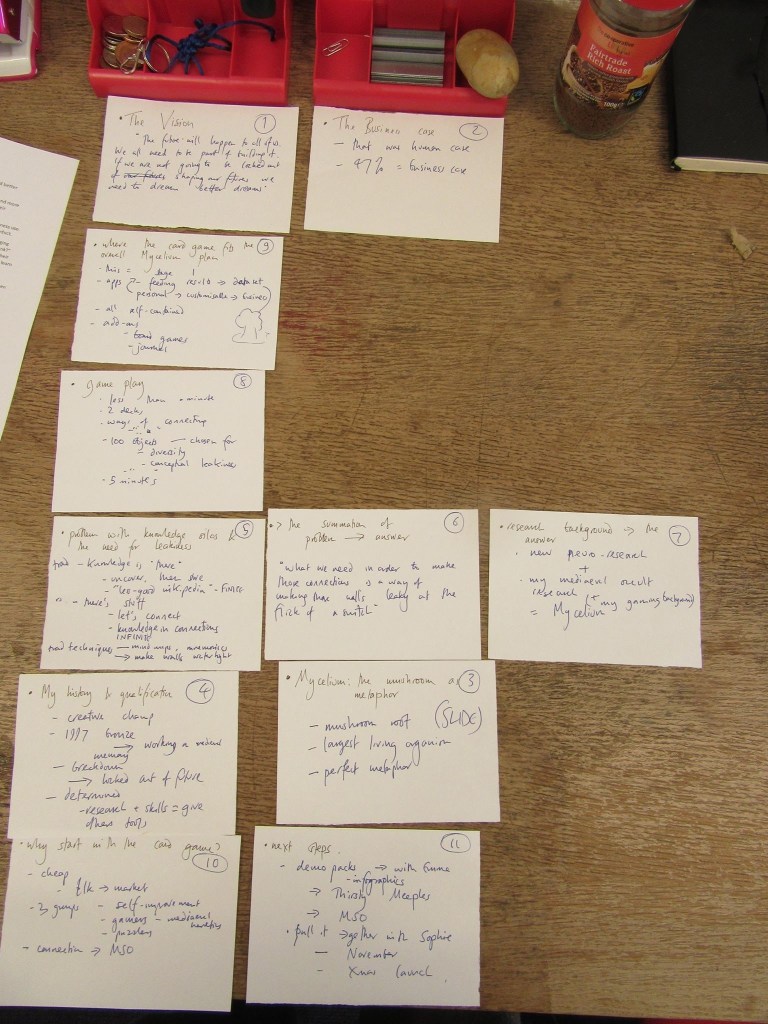 Fairtrade
Rich Roast
100g
• The Vision 1
"The future will happen to all of us.
We all need to be part of building it.
If we are not going to be locked out
of our futures shaping our futures we
need to dream better dreams"
• The Business case 2
- that was human case
- 47% = business case
• where the card game fits the 9
overall Mycelium plan
- this = stage 1
- apps - feeding results → dataset
personal → customisable → business
- all self-contained
- add-ons
- board games
- journals
• game play 8
- less than a minute
- 2 decks
- ways of connecting
- 100 objects - chosen for
- diversity
- conceptual leakiness
- 5 minutes
• problem with knowledge silos & 5
the need for leakiness
trad - knowledge is "there"
- uncover, then save
- "leo-good wikipedia" - FINITE
- there's stuff
- let's connect
- knowledge in connections
INFINITE
trad techniques - mind maps, mnemonics
→ make walls watertight
• > the summation of 6
problem → answer
"what we need in order to make
those connections is a way of
making those walls leaky at the
flick of a switch"
• research background → the 7
answer
- new neuro-research
+
- my mediaeval occult
research (+ my gaming background)
= Mycelium
• My history & qualification 4
- creative champ
- 1997 bronze
→ working on mediaeval
memory
- breakdown
→ locked out of future
- determined
- research + skills = give
others tools
• Mycelium: the mushroom as 3
metaphor
- mushroom root (SLIDE)
- largest living organism
- perfect metaphor
• why start with the card game? 10
- cheap
- £1k → market
- 3 groups - self-improvement
- gamers - mediaeval
- puzzlers
- connection → MSO
• next steps 11
- demo packs → with Emma
- infographics
→ Thirsty Meeples
→ MSO
• pull it → gether with Sophie
- November
- Xmas launch